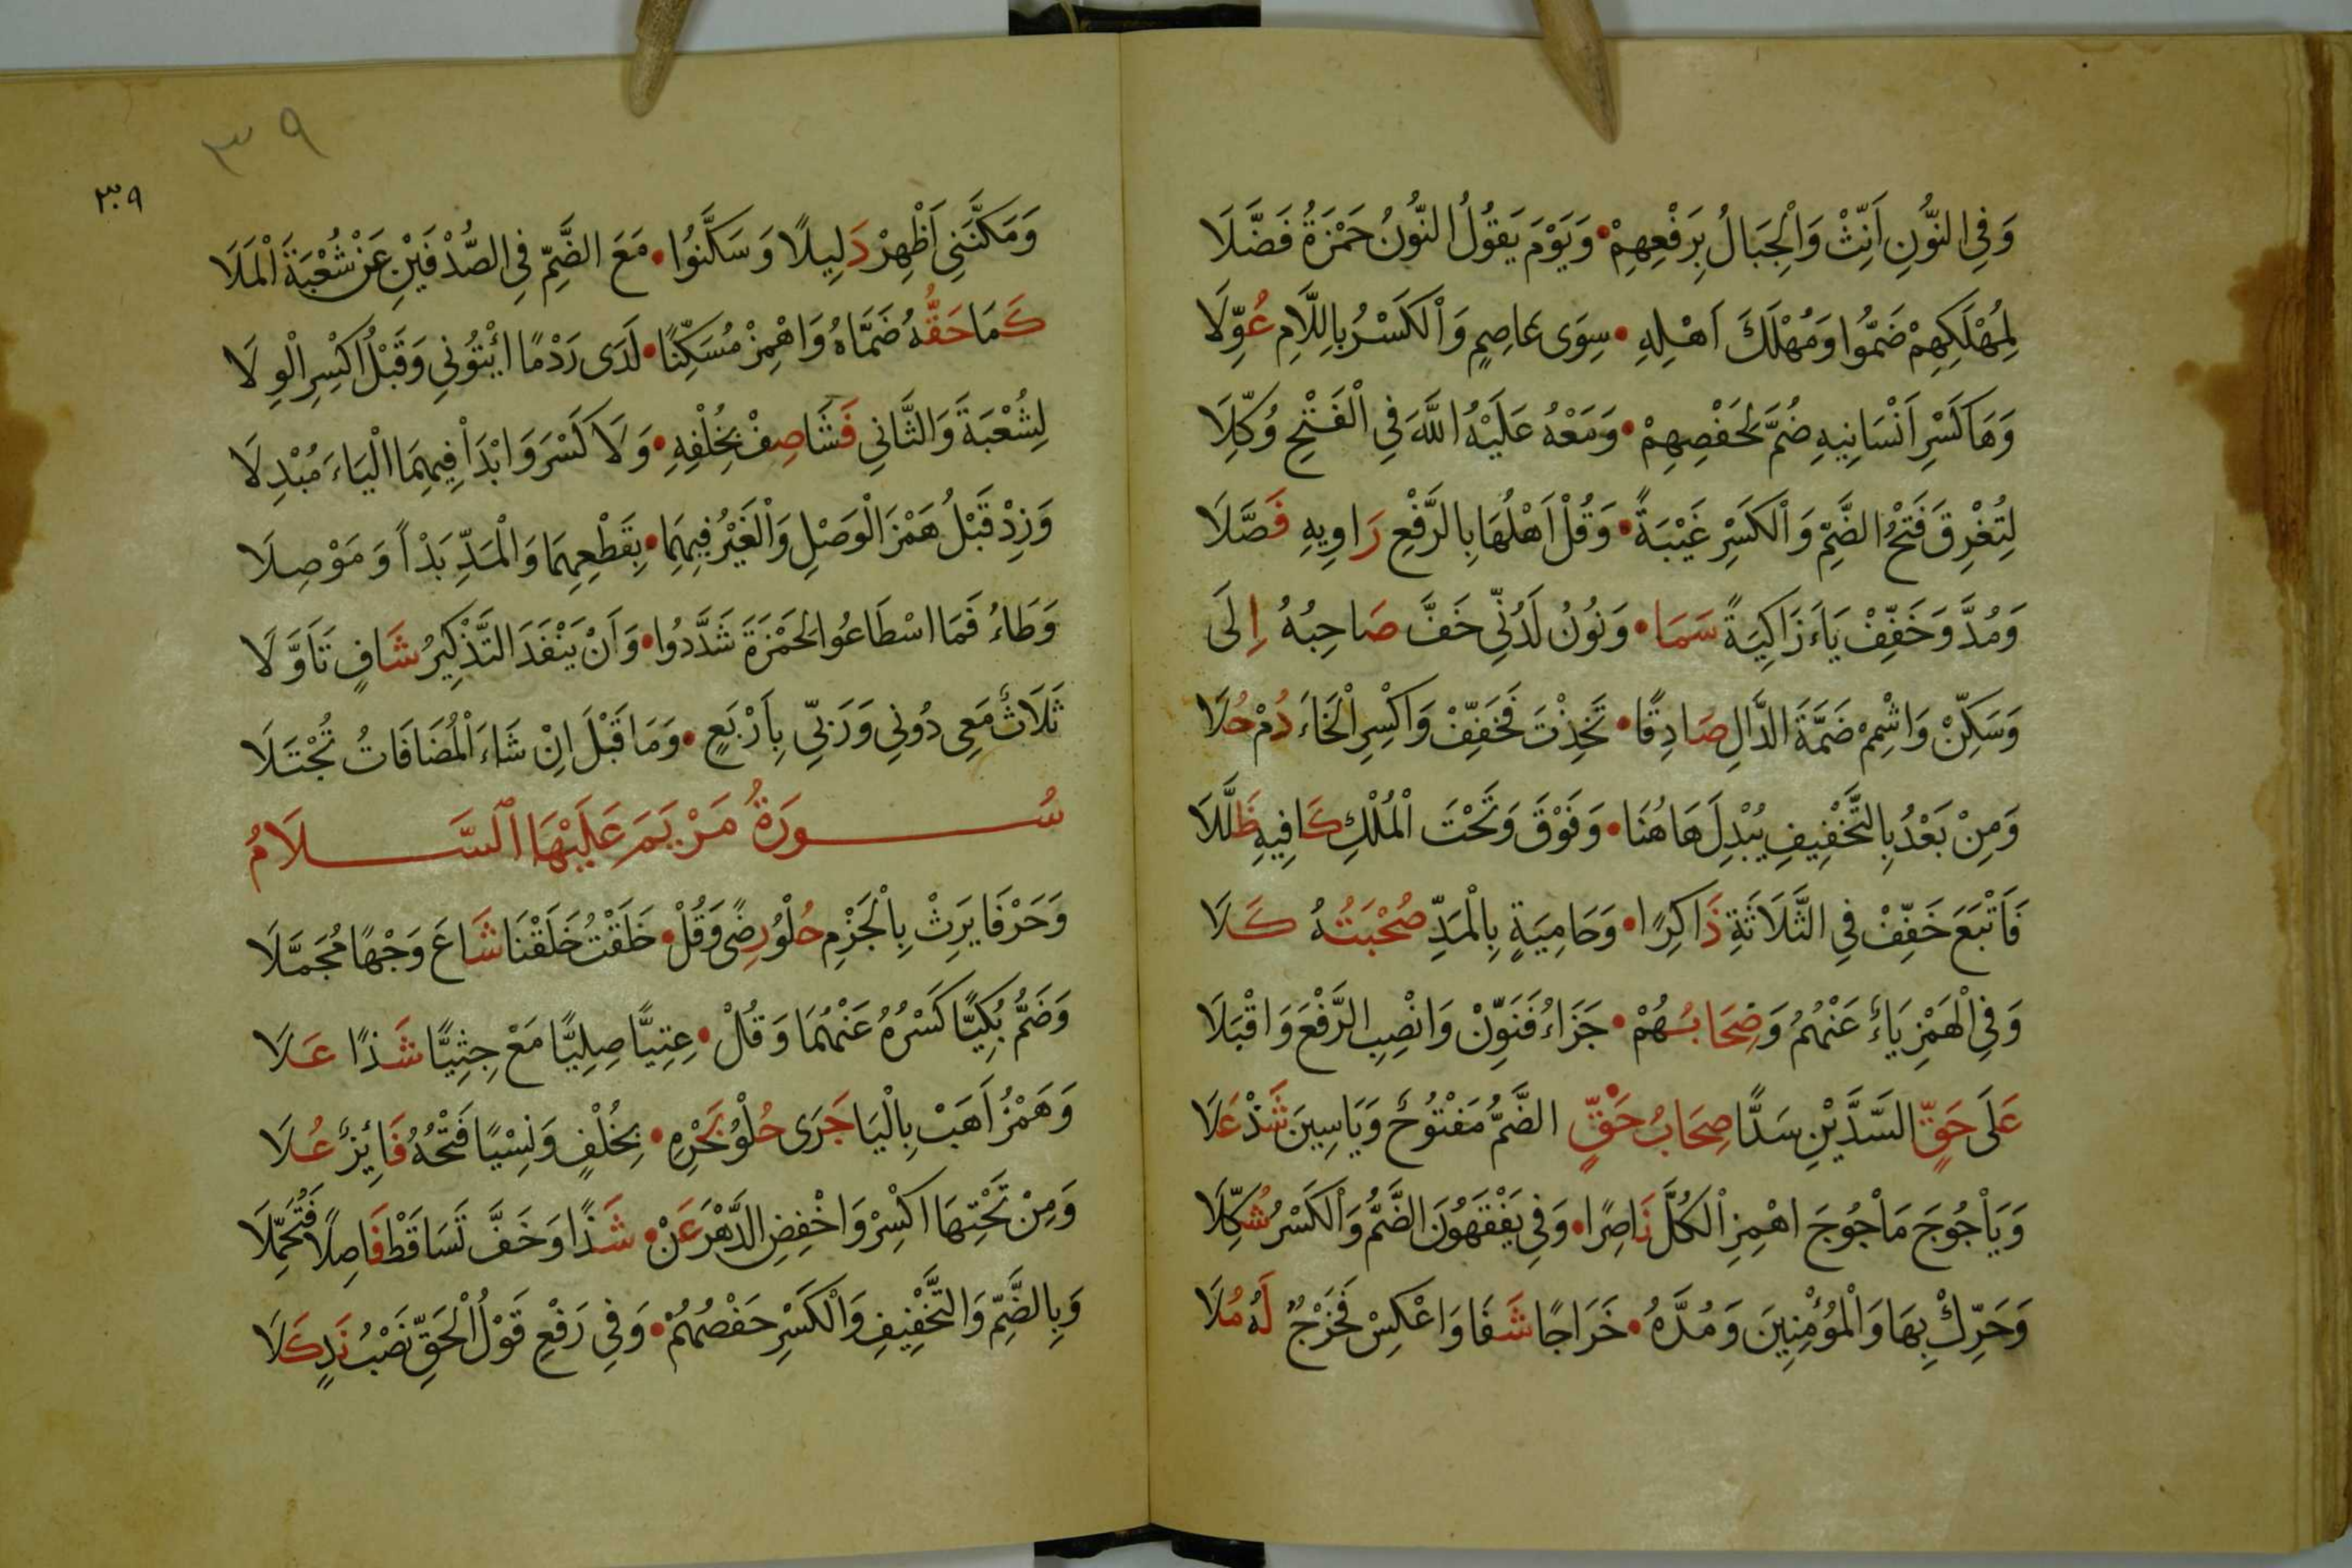 وَفِي النُّونِ اَنِّثْ وَالْجِبَالُ بِرَفْعِهِمْ • وَيَوْمَ يَقُولُ النُّونُ حَمْزَةُ فَضَّلَا
لِمُهْلَكِهِمْ ضَمُّوا وَمُهْلَكَ اَهْلِهِ • سِوَى عَاصِمٍ وَالْكَسْرُ بِاللَّامِ عُوِّلَا
وَهَا كَسْرِ اَنْسَانِيهِ ضُمَّ لِحَفْصِهِمْ • وَمَعْهُ عَلَيْهُ اللَّهَ فِي الْفَتْحِ وُكِّلَا
لِتُغْرِقَ فَتْحُ الضَّمِّ وَالْكَسْرِ غَيْبَةً • وَقُلْ اَهْلُهَا بِالرَّفْعِ رَاوِيهِ فَصَّلَا
وَمُدَّ وَخَفِّفْ يَاءَ زَاكِيَةً سَمَا • وَنُونُ لَدُنِّي خَفَّ صَاحِبُهُ اِلَى
وَسَكِّنْ وَاشْمِمْ ضَمَّةَ الدَّالِ صَادِقًا • تَخِذْتَ فَخَفِّفْ وَاكْسِرِ الْخَاءَ دُمْ حُلَا
وَمِنْ بَعْدُ بِالتَّخْفِيفِ يُبْدِلَ هَاهُنَا • وَفَوْقَ وَتَحْتَ الْمُلْكِ كَافِيهِ ظَلَّلَا
فَاَتْبَعَ خَفِّفْ فِي الثَّلَاثَةِ ذَاكِرًا • وَحَامِيَةٍ بِالْمَدِّ صُحْبَتُهُ كَلَا
وَفِي الْهَمْزِ يَاءٌ عَنْهُمُ وَصِحَابُهُمْ • جَزَاءُ فَنَوِّنْ وَانْصِبِ الرَّفْعَ وَاقْبَلَا
عَلَى حَقٍّ السَّدَّيْنِ سَدًّا صِحَابُ حَقٍّ • الضَّمُّ مَفْتُوحٌ وَيَاسِينَ شَذْ عَلَا
وَيَاْجُوجَ مَاْجُوجَ اهْمِزِ الْكُلَّ نَاصِرًا • وَفِي يَفْقَهُونَ الضَّمُّ وَالْكَسْرُ شُكِّلَا
وَحَرِّكْ بِهَا وَالْمُؤْمِنِينَ وَمُدَّهُ • خَرَاجًا شَفَا وَاعْكِسْ فَخَرْجُ لَهُ مُلَا
٣٩
٣٠٩
وَمَكَّنَنِي اَظْهِرْ دَلِيلًا وَسَكَّنُوا • مَعَ الضَّمِّ فِي الصُّدْفَيْنِ عَنْ شُعْبَةَ الْمَلَا
كَمَا حَقُّهُ ضَمَّاهُ وَاهْمِزْ مُسَكِّنًا • لَدَى رَدْمًا ائْتُونِي وَقَبْلُ اكْسِرِ الْوِلَا
لِشُعْبَةَ وَالثَّانِي فَشَا صِفْ بِخُلْفِهِ • وَلَا كَسْرَ وَابْدَاْ فِيهِمَا الْيَاءَ مُبْدِلَا
وَزِدْ قَبْلُ هَمْزَ الْوَصْلِ وَالْغَيْرُ فِيهِمَا • بِقَطْعِهِمَا وَالْمَدِّ بَدْاً وَمَوْصِلَا
وَطَاءُ فَمَا اسْطَاعُوا لِحَمْزَةَ شَدَّدُوا • وَاَنْ يَنْفَدَ التَّذْكِيرُ شَافٍ تَاَوَّلَا
ثَلَاثٌ مَعِي دُونِي وَرَبِّي بِاَرْبَعٍ • وَمَا قَبْلَ اِنْ شَاءَ الْمُضَافَاتُ تُجْتَلَا
سُورَةُ مَرْيَمَ عَلَيْهَا السَّلَامُ
وَحَرْفَا يَرِثْ بِالْجَزْمِ حُلْوُ رِضًى وَقُلْ • خَلَقْتُ خَلَقْنَا شَاعَ وَجْهًا مُجَمَّلَا
وَضَمُّ بُكِيًّا كَسْرُهُ عَنْهُمَا وَقُلْ • عِتِيًّا صِلِيًّا مَعْ جِثِيًّا شَذًا عَلَا
وَهَمْزُ اَهَبْ بِالْيَا جَرَى حُلْوُ بَحْرِهِ • بِخُلْفٍ وَنِسْيًا فَتْحُهُ فَائِزٌ عُلَا
وَمِنْ تَحْتِهَا اكْسِرْ وَاخْفِضِ الدَّهْرَ عَنْ • شَذًا وَخَفَّ تَسَاقَطْ فَاصِلًا فَتُحُمِّلَا
وَبِالضَّمِّ وَالتَّخْفِيفِ وَالْكَسْرِ حَفْصُهُمْ • وَفِي رَفْعِ قَوْلُ الْحَقِّ نَصْبُ نَدٍ كَلَا